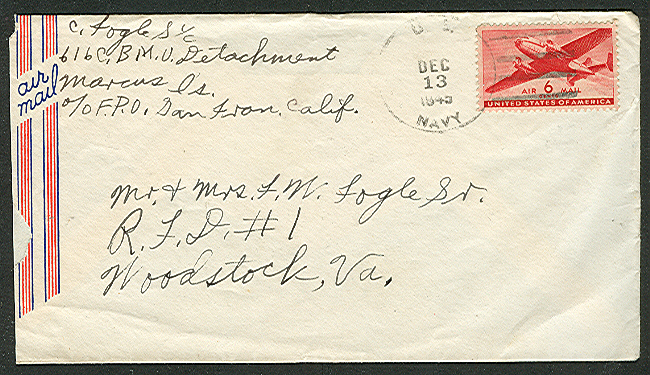 C. Fogle S 1/c
616 C.B.M.U. Detachment
Marcus Is.
c/o F.P.O. San Fran. Calif.
air
mail
U S
DEC
13
1945
NAVY
AIR 6 MAIL
CENTS
UNITED STATES OF AMERICA
Mr. & Mrs. F. W. Fogle Sr.
R. F. D. # 1
Woodstock, Va.
air
mail